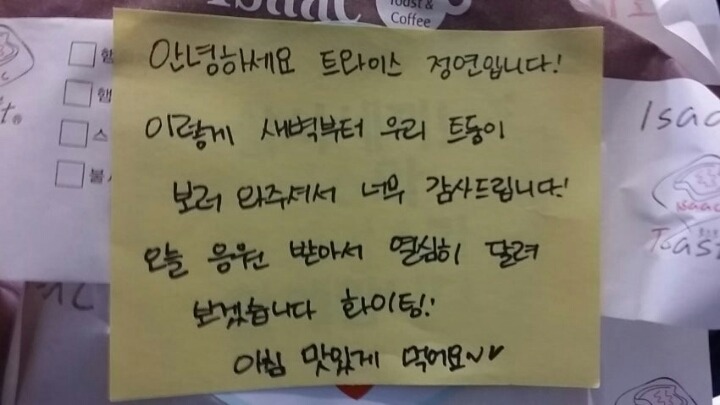 Isaac
Toast &
Coffee
안녕하세요 트와이스 정연입니다!
이렇게 새벽부터 우리 트둥이
보러 와주셔서 너무 감사드립니다!
오늘 응원 받아서 열심히 달려
보겠습니다 화이팅!
아침 맛있게 먹어요~♥
햄
스
불
Isaac
Toast